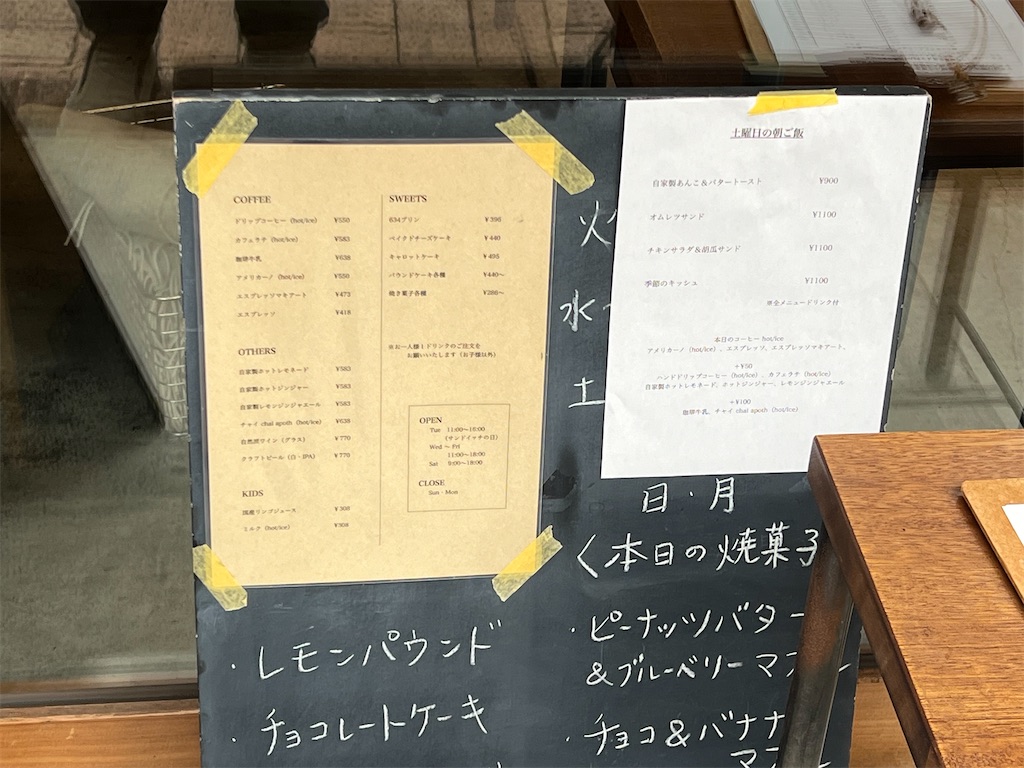 COFFEE
ドリップコーヒー (hot/ice) ¥550
カフェラテ (hot/ice) ¥583
珈琲牛乳 ¥638
アメリカーノ (hot/ice) ¥550
エスプレッソマキアート ¥473
エスプレッソ ¥418
OTHERS
自家製ホットレモネード ¥583
自家製ホットジンジャー ¥583
自家製レモンジンジャエール ¥583
チャイ chai apoth (hot/ice) ¥638
自然派ワイン (グラス) ¥770
クラフトビール (白・IPA) ¥770
KIDS
国産リンゴジュース ¥308
ミルク (hot/ice) ¥308
SWEETS
634プリン ¥396
ベイクドチーズケーキ ¥440
キャロットケーキ ¥495
パウンドケーキ各種 ¥440〜
焼き菓子各種 ¥286〜
※お一人様1ドリンクのご注文を
お願いいたします (お子様以外)
OPEN
Tue 11:00〜16:00
(サンドイッチの日)
Wed 〜 Fri
11:00〜18:00
Sat 9:00〜18:00
CLOSE
Sun・Mon
土曜日の朝ご飯
自家製あんこ＆バタートースト ¥900
オムレツサンド ¥1100
チキンサラダ＆胡瓜サンド ¥1100
季節のキッシュ ¥1100
※全メニュードリンク付
本日のコーヒー hot/ice
アメリカーノ (hot/ice) 、エスプレッソ、エスプレッソマキアート、
+¥50
ハンドドリップコーヒー (hot/ice) 、カフェラテ (hot/ice)
自家製ホットレモネード、ホットジンジャー、レモンジンジャエール
+¥100
珈琲牛乳、チャイ chai apoth (hot/ice)
火
水
土
日・月
〈本日の焼菓子
・レモンパウンド
・チョコレートケーキ
・ピーナッツバター
&ブルーベリーマフィン
・チョコ&バナナ
マフィン